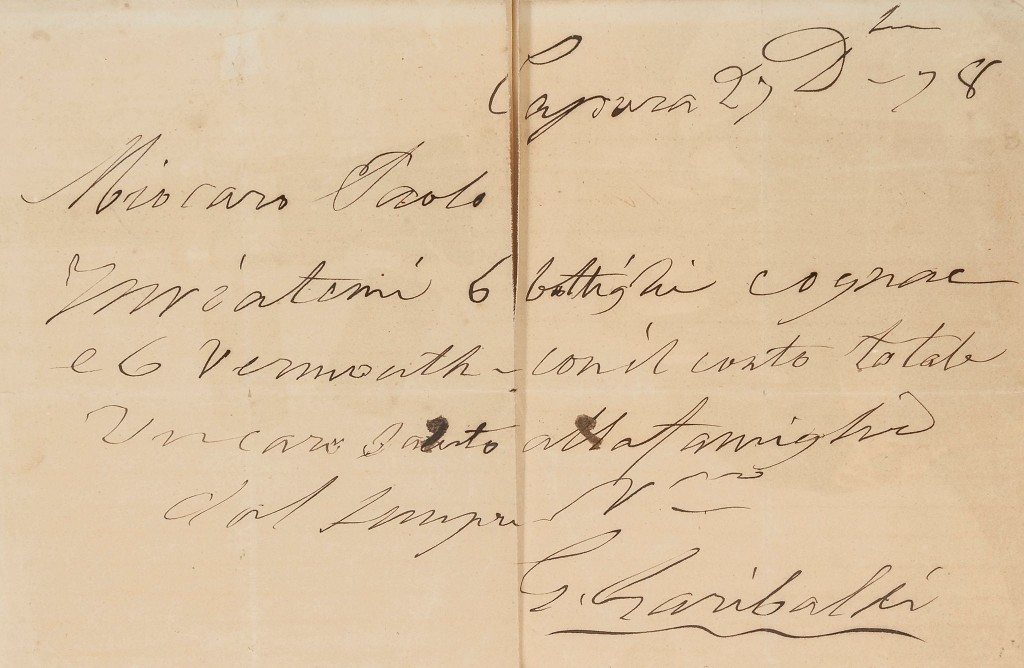 Caprera 27 Dbre 78
Mio caro Paolo
Inviatemi 6 bottiglie cognac
e 6 Vermouth - con il conto totale
Un caro saluto alla famiglia
dal sempre Vro
G. Garibaldi